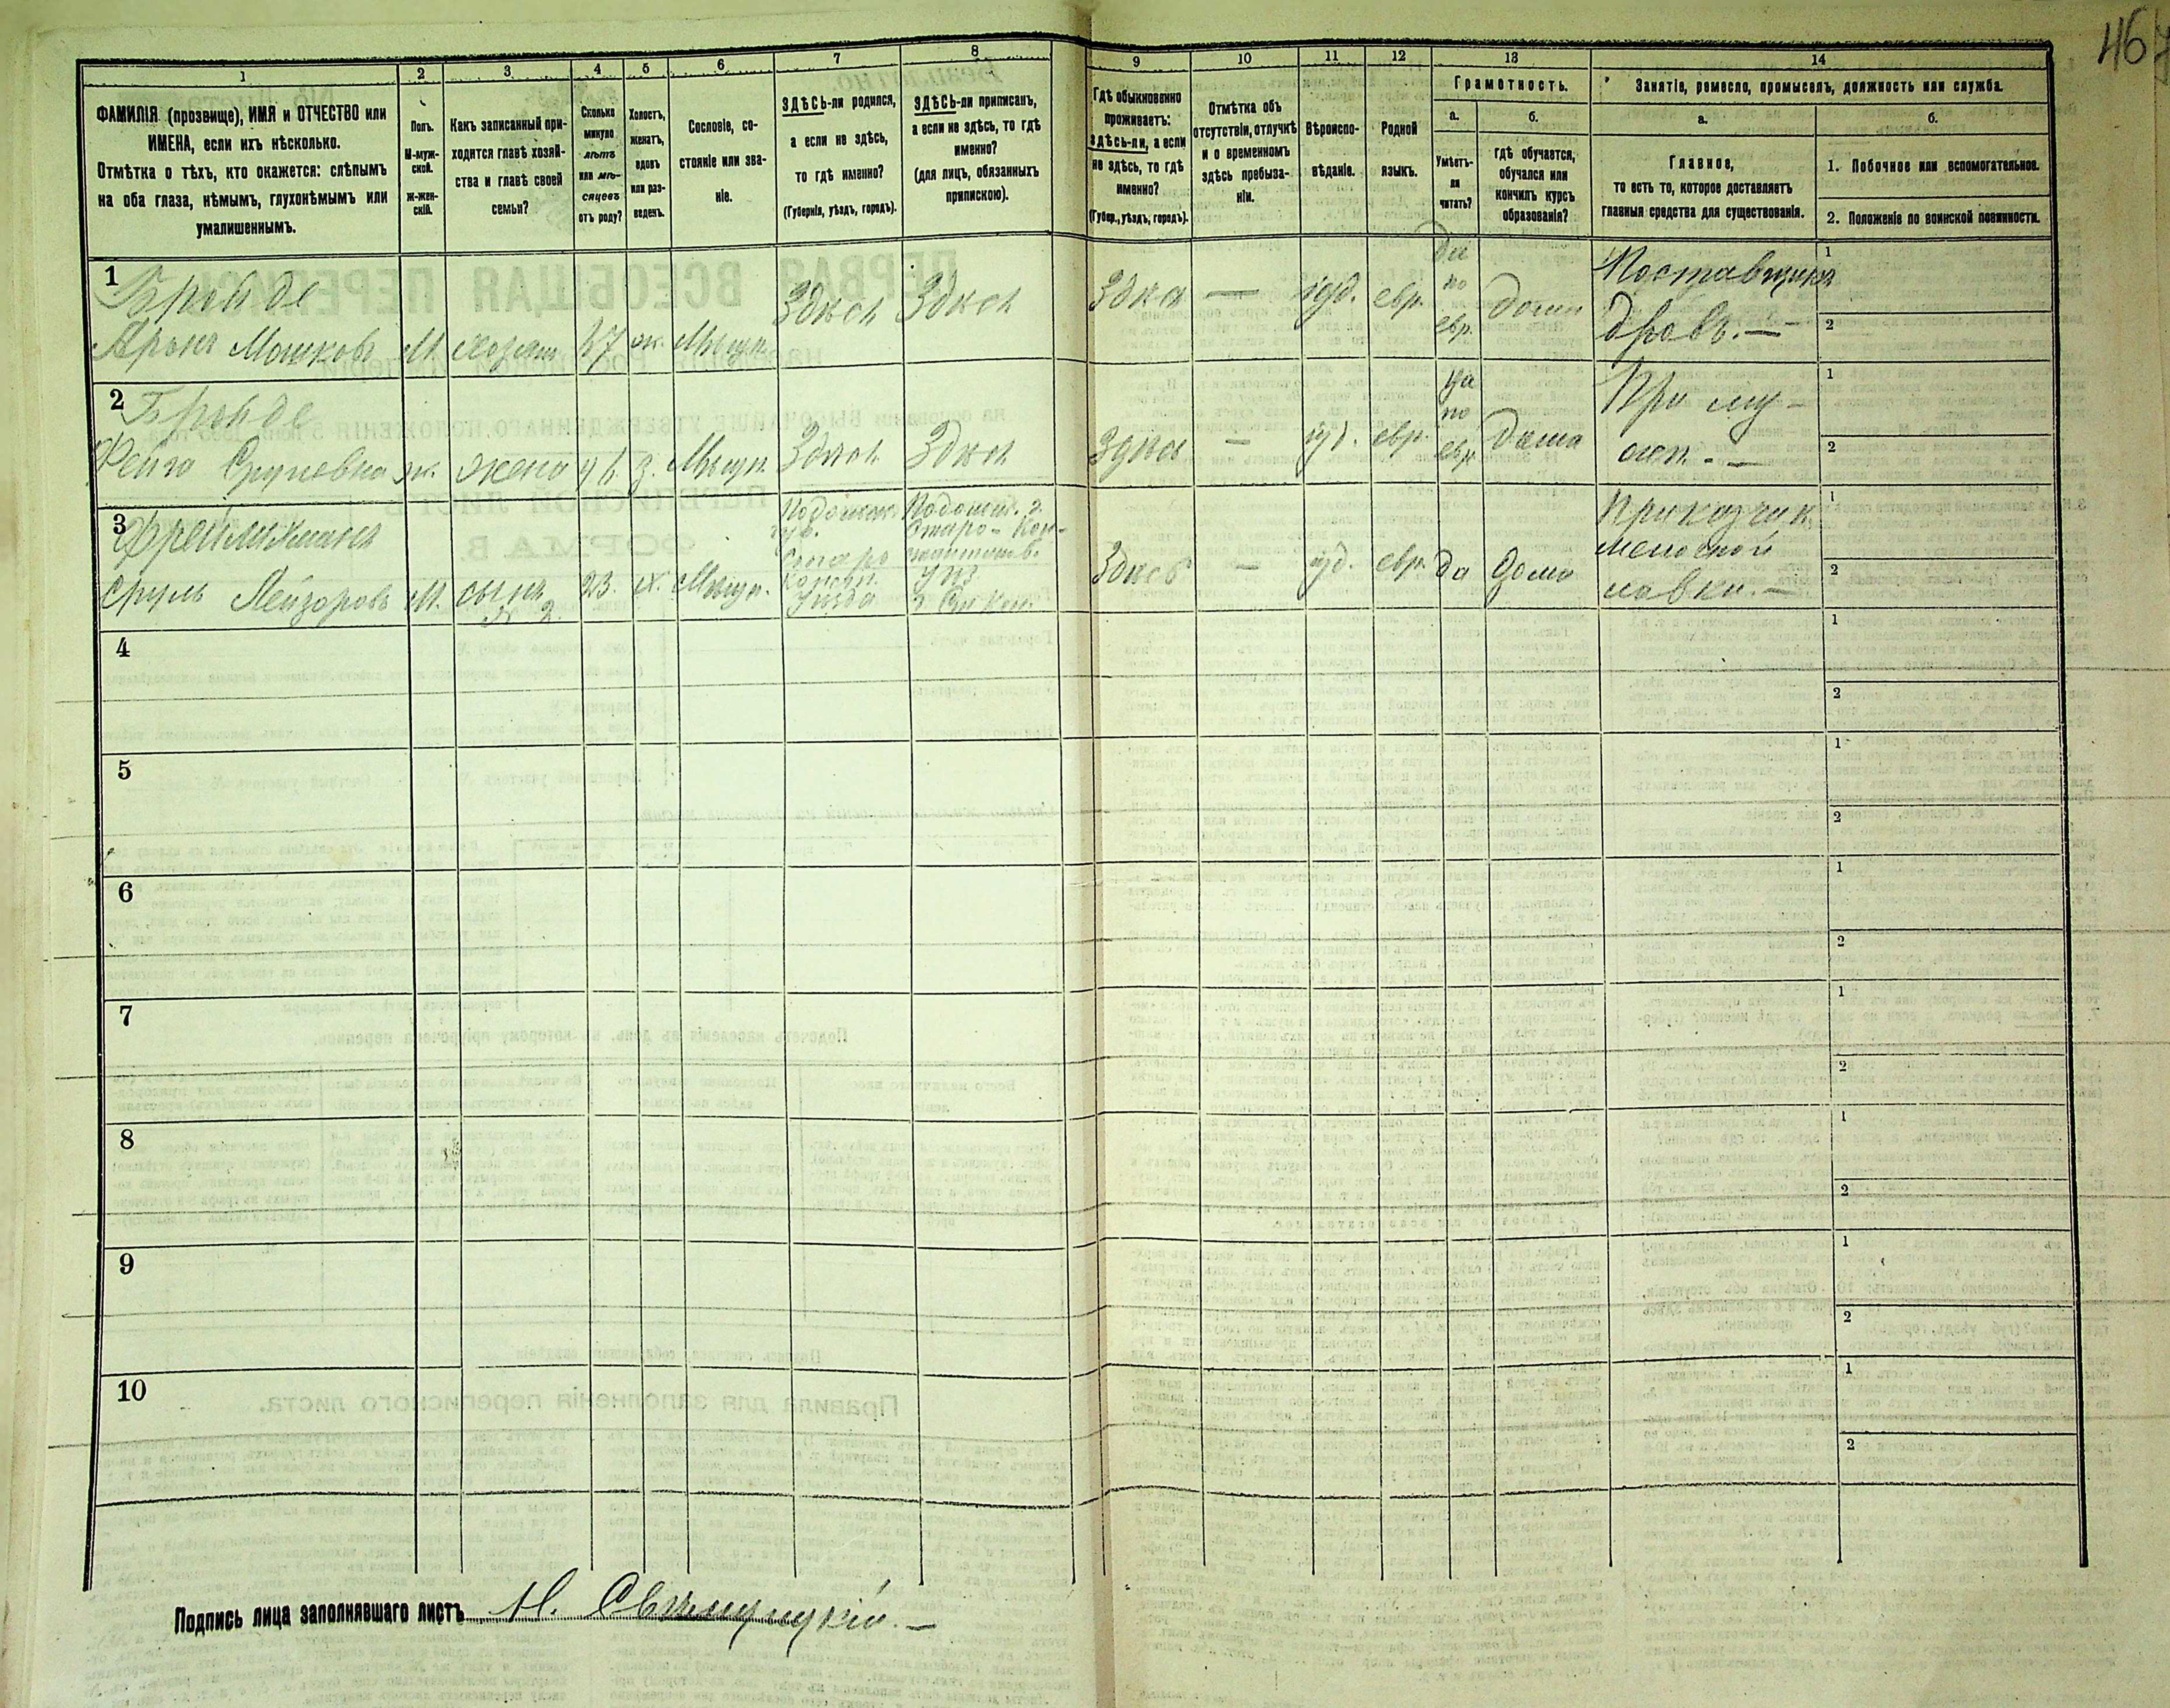 467
1 2 3 4 5 6 7 8 9 10 11 12 13 14
ФАМИЛІЯ (прозвище), ИМЯ и ОТЧЕСТВО или
ИМЕНА, если ихъ нѣсколько.
Отмѣтка о тѣхъ, кто окажется: слѣпымъ
на оба глаза, нѣмымъ, глухонѣмымъ или
умалишеннымъ.
Полъ.
М-муж-
ской.
ж-жен-
скій.
Какъ записанный при-
ходится главѣ хозяй-
ства и главѣ своей
семьи?
Сколько
минуло
лѣтъ
или мѣ-
сяцевъ
отъ роду?
Холостъ,
женатъ,
вдовъ
или раз-
веденъ.
Сословіе, со-
стояніе или зва-
ніе.
ЗДѢСЬ-ли родился,
а если не здѣсь,
то гдѣ именно?
(Губернія, уѣздъ, городъ).
ЗДѢСЬ-ли приписанъ,
а если не здѣсь, то гдѣ
именно?
(для лицъ, обязанныхъ
припискою).
Гдѣ обыкновенно
проживаетъ:
здѣсь-ли, а если
не здѣсь, то гдѣ
именно?
(Губер., уѣздъ, городъ).
Отмѣтка объ
отсутствіи, отлучкѣ
и о временномъ
здѣсь пребыва-
ніи.
Вѣроиспо-
вѣданіе.
Родной
языкъ.
Грамотность.
а.
Умѣетъ-
ли
читать?
б.
гдѣ обучается,
обучался или
кончилъ курсъ
образованія?
Занятіе, ремесло, промыселъ, должность или служба.
а.
Главное,
то есть то, которое доставляетъ
главныя средства для существованія.
б.
1. Побочное или вспомогательное.
2. Положеніе по воинской повинности.
1
Бронде
Аронъ Мошковъ М. хозяин 47 ж. Мѣщан. Здѣсь Здѣсь Здѣсь — іуд. евр. да по евр. дома
Поставщикъ
дровъ. —
1
2
2
Бронде
Фейга Срулевна ж. жена з. Мѣщан. Здѣсь Здѣсь Здѣсь — іуд. евр. да по евр. дома
При му-
жѣ. —
1
2
3
Фреймиманъ
Сруль Лейзоровъ М. сынъ № 2. 23 х. Мѣщан.
Подольск.
губ.
Старо
Конст.
Уѣзда
Здѣсь — іуд. евр. да дома
Приказчик
мелочной
лавки. —
1
2
4
1
2
5
1
2
6
1
2
7
1
2
8
1
2
9
1
2
10
1
2
Подпись лица заполнявшаго листъ